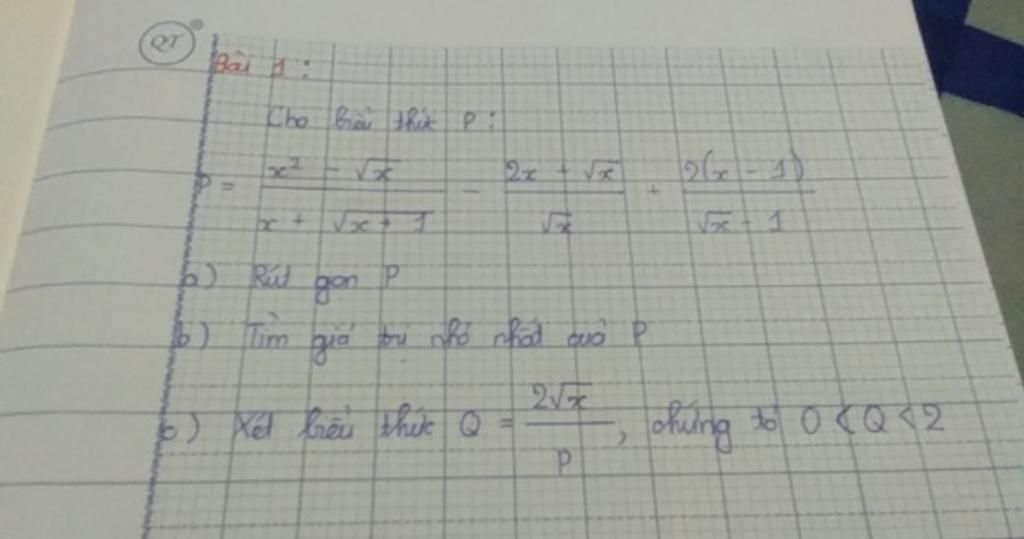 QT
Bài 1:
Cho biểu thức P:
P = \frac{x² - √x}{x + √(x + 1)} - \frac{2x + √x}{√x} + \frac{2(x - 1)}{√x - 1}
a) Rút gọn P
b) Tìm giá trị nhỏ nhất của P
c) Xét biểu thức Q = \frac{2√x}{P}, chứng tỏ 0 < Q < 2